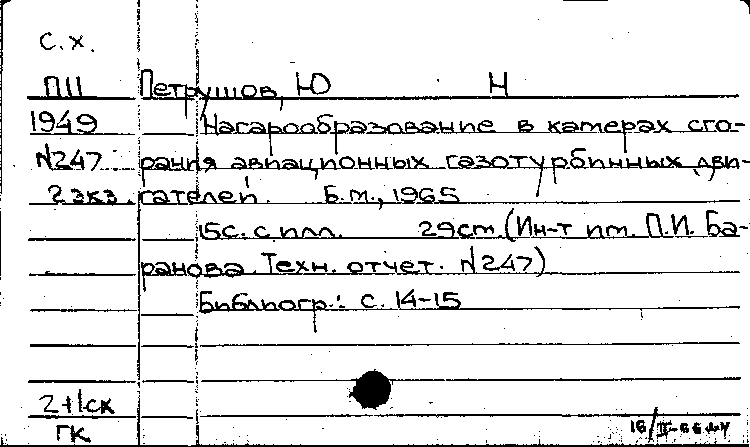 с.х.
П11 Петрушов, Ю Н
1949 Нагарообразование в камерах сго-
N247 рания авиационных газотурбинных дви-
2 экз. гателей. Б.м., 1965
15с. с илл. 29см. (Ин-т им. П.И. Ба-
ранова. Техн. отчет. N247)
Библиогр.: с. 14-15
2+1ск
ГК 16/II-66